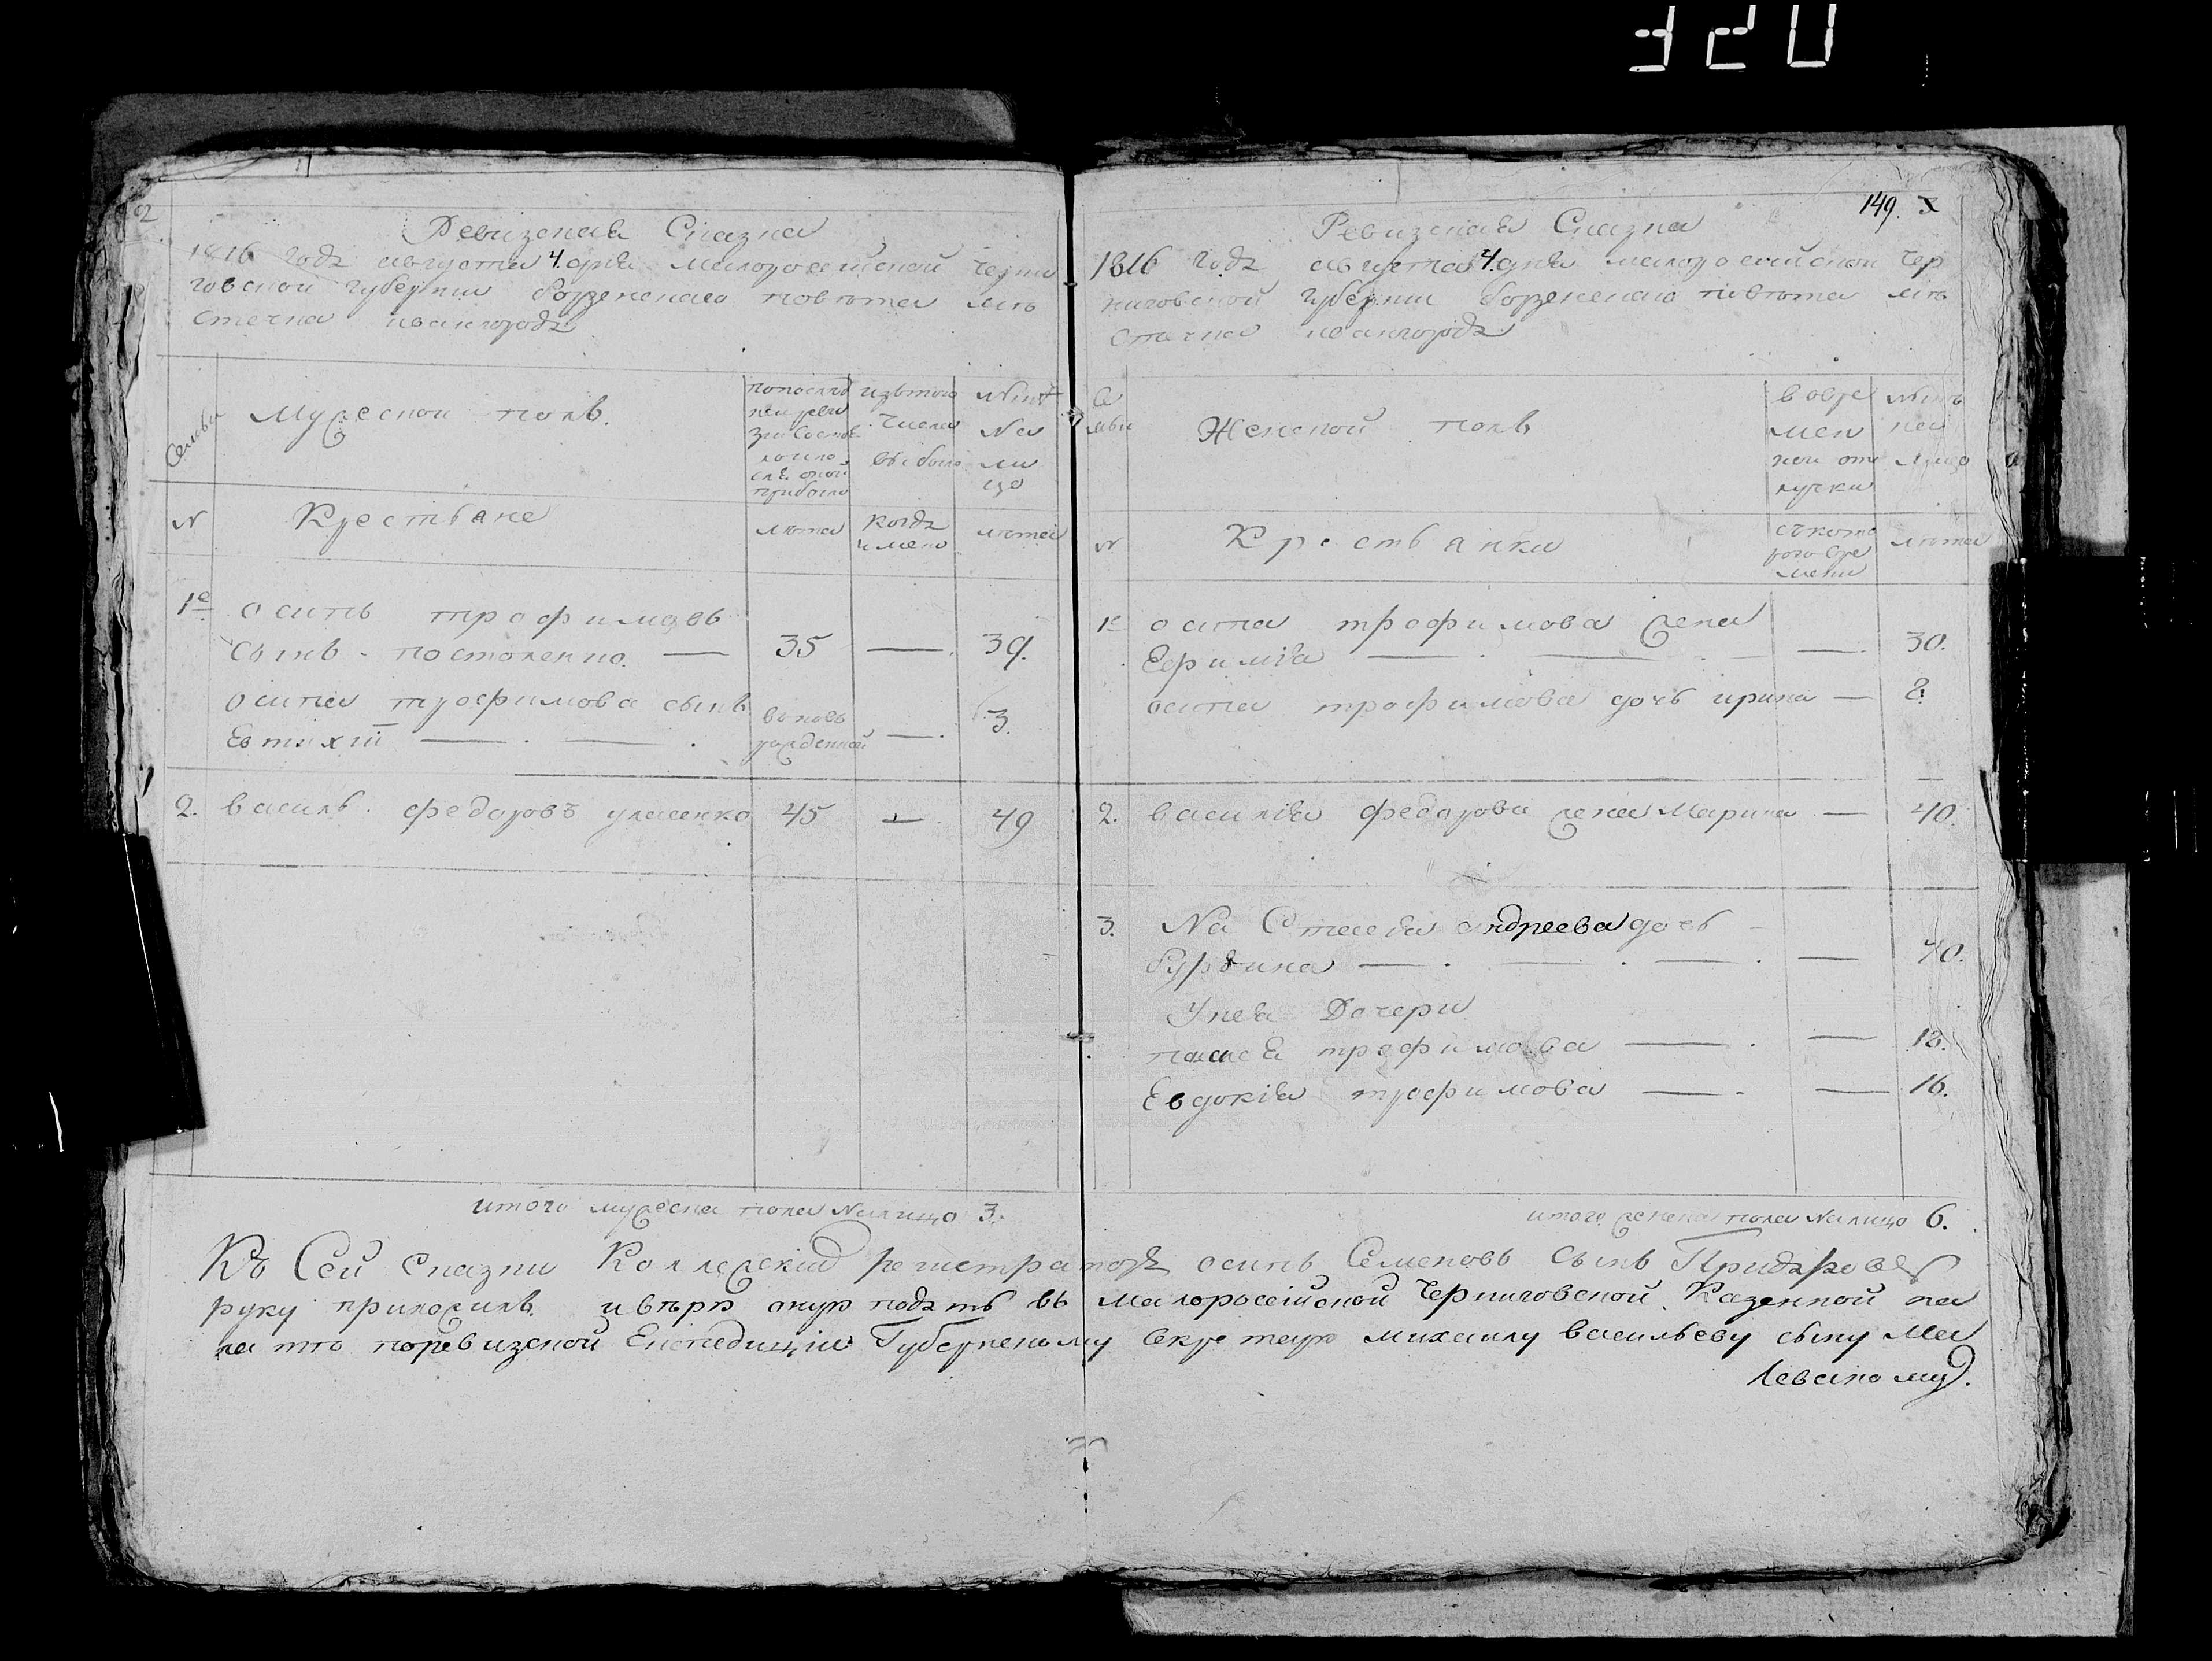 320
2
Ревизская Сказка
1816 года августа 4. дня малоросийской черни
говской губернии борзенского повета мѣ
стечка ивангорода
Семьи
Мужеской полъ.
по послѣд
ней реви
зіи состоя
ло и по
слѣ оной
прибыло
изътого
числа
выбыло
нынѣ
На
ли
цо
N
Крестьяне
лѣта
когда
имено
лѣта
1е
осипъ трофимовъ
сынъ постоленко. — 35 — 39.
осипа трофимова сынъ
Евтихій — — вновь рожденной — 3.
2. василь федоровъ 45 — 49
итого мужеска пола Налицо 3.
149.
Ревизская Сказка
1816 года августа 4. дня малоросийской чер
ниговской губернии борзенского повета мѣ
стечка ивангорода
Се
мьи
Женской полъ
во вре
мен
ной от
лучки
нынѣ
на
лицо
N
Крестьянки
съ кото
рого вре
мени
лѣта
1е осипа трофимова жена
Ефимія — — — 30.
осипа трофимова дочь ирина — 8.
2. василія федорова жена Марина — 40.
3. Настасія андреева дочь
— — — — 40.
Унея Дочери
трофимова — — 18.
Евдокія трофимова — — 16.
итого женска пола Налицо 6.
Къ Сей сказки Колежскій регистраторъ осипъ Семеновъ сынъ
руку приложилъ и вѣрю оную подать въ малоросійской Черниговской Казенной па
ла то по ревизской Експедиціи Губернскому секретарю михаилу васильеву сыну Ма
левскому.